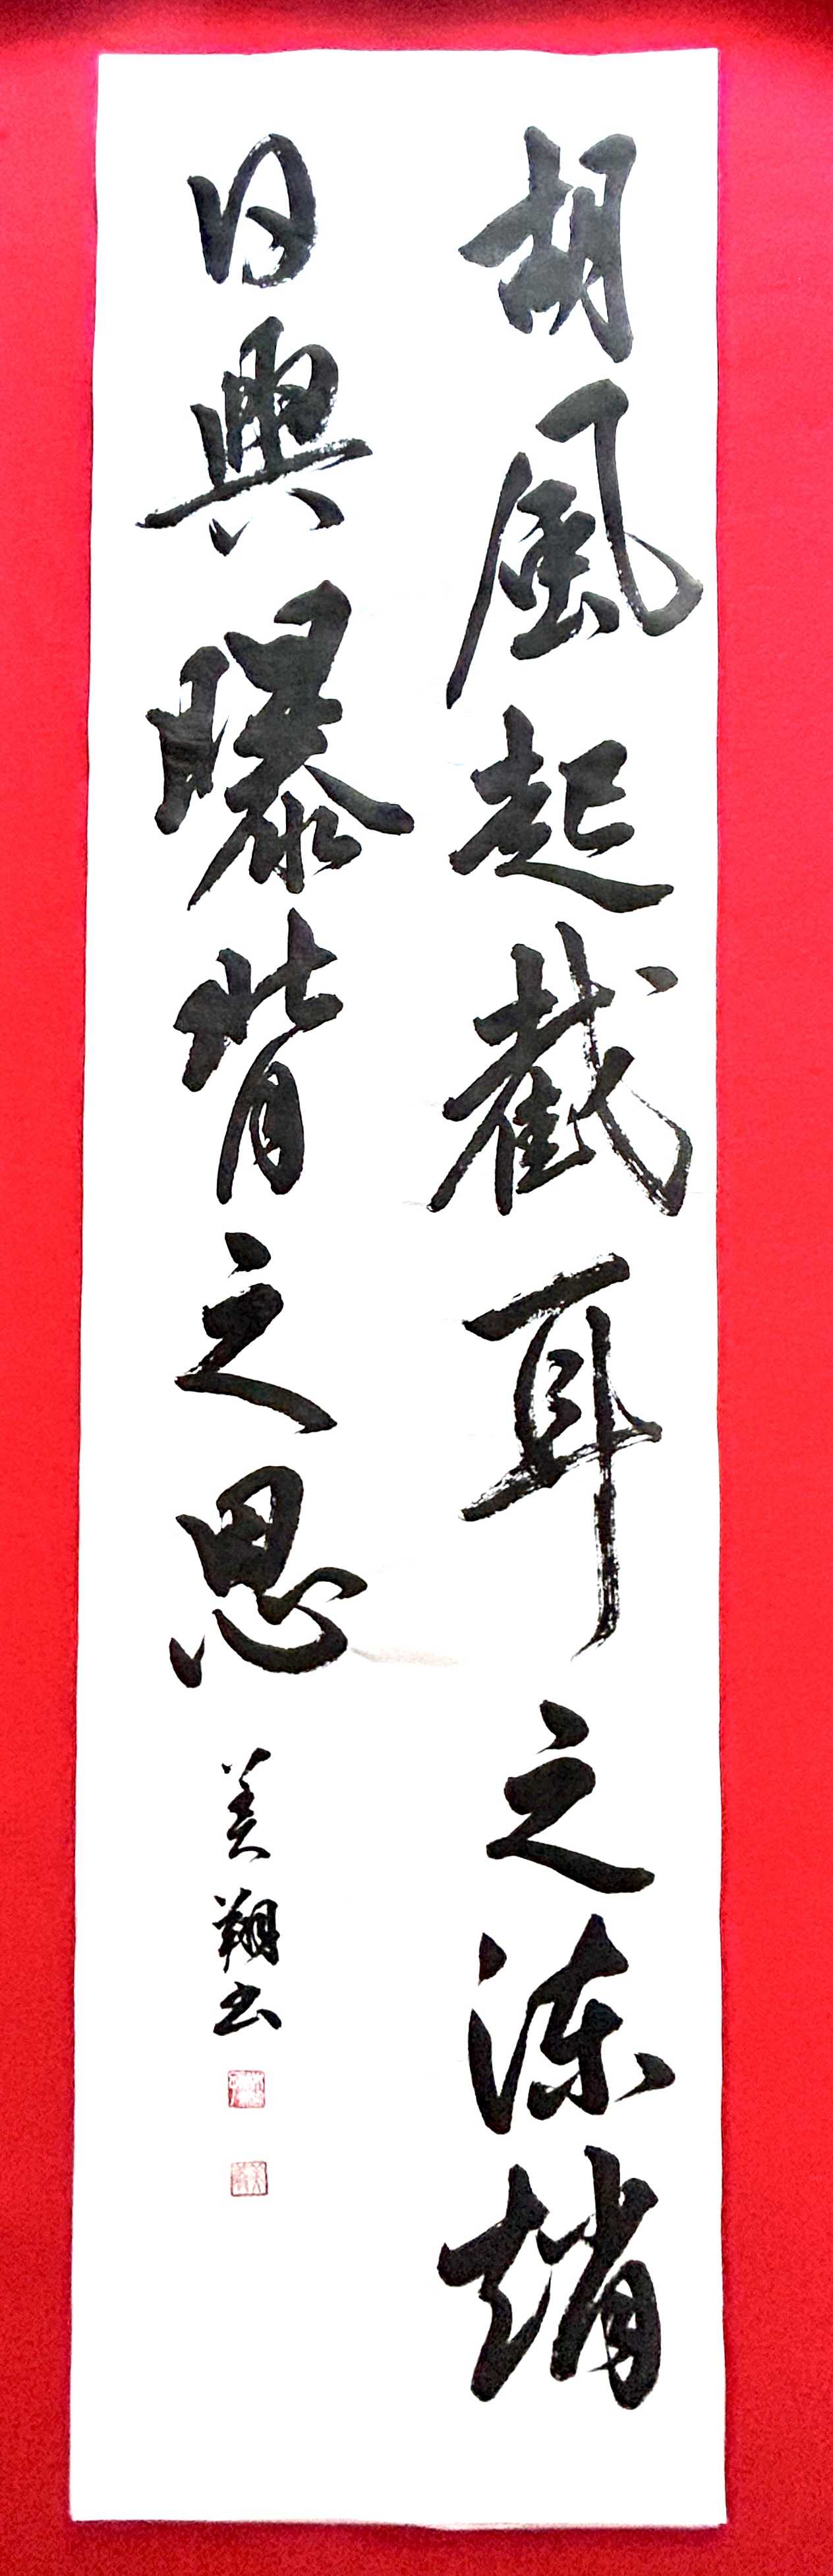 胡風起截耳之凍趙
日興曝背之思
美翔書